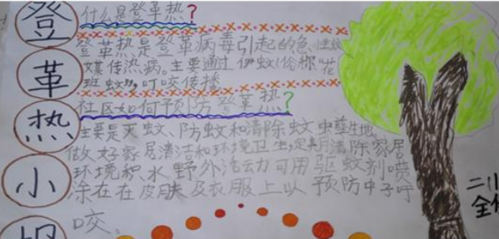 登革热小报
什么是登革热?
登革热是登革病毒引起的急性蚊
媒传热病。主要通过伊蚊(俗称"花
班蚊")叮咬传播
社区如何预防登革热?
主要是灭蚊、防蚊和清除蚊虫孳生地,
做好家居清洁和环境卫生,定期清除家居
环境积水野外活动可用驱蚊剂喷
涂在在皮肤及衣服上以预防
咬。
二
全